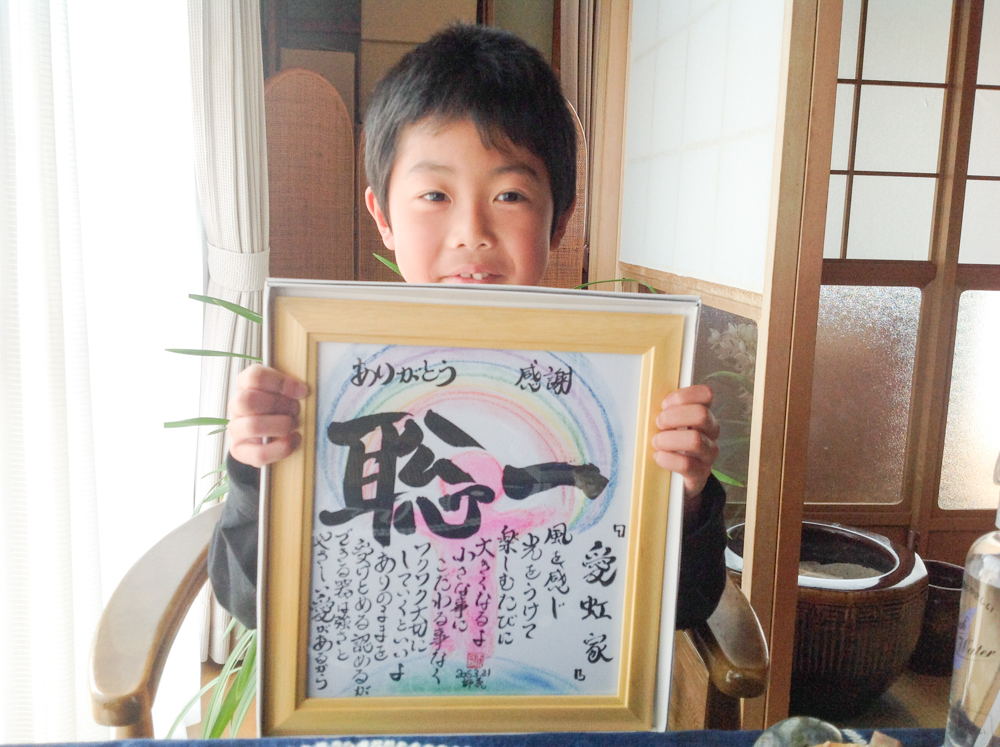 ありがとう
感謝
聡一
『愛虹家』
風を感じ
光をうけて
楽しむたびに
大きくなるよ
小さな事に
こだわる事なく
ワクワク大切に
していくといいよ
ありのままを
受けとめる 認めるが
できる器は
やさしい愛があるから